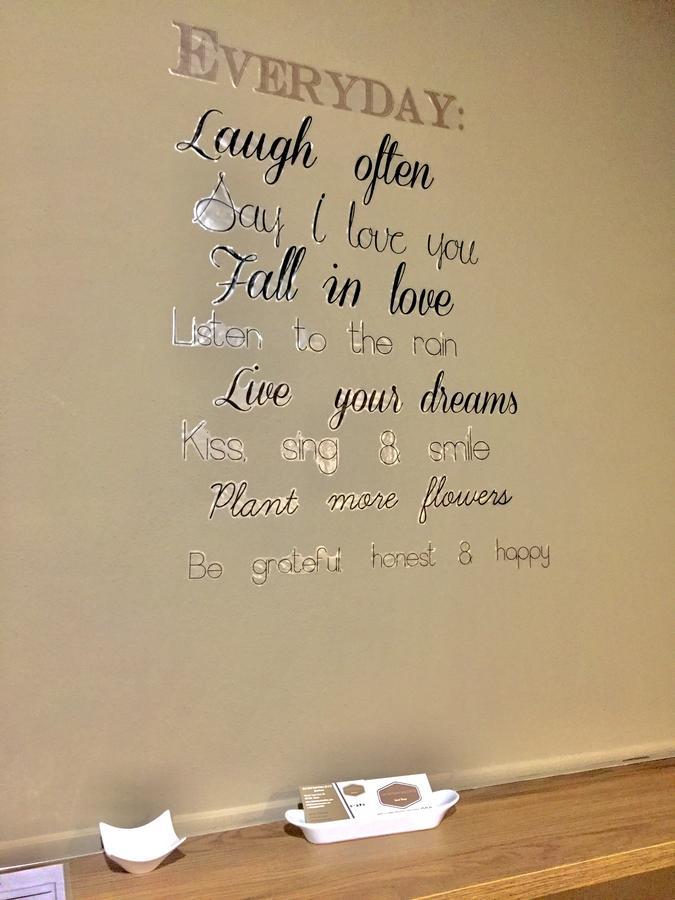 EVERYDAY:
Laugh often
Say I love you
Fall in love
Listen to the rain
Live your dreams
Kiss, sing & smile
Plant more flowers
Be grateful honest & happy